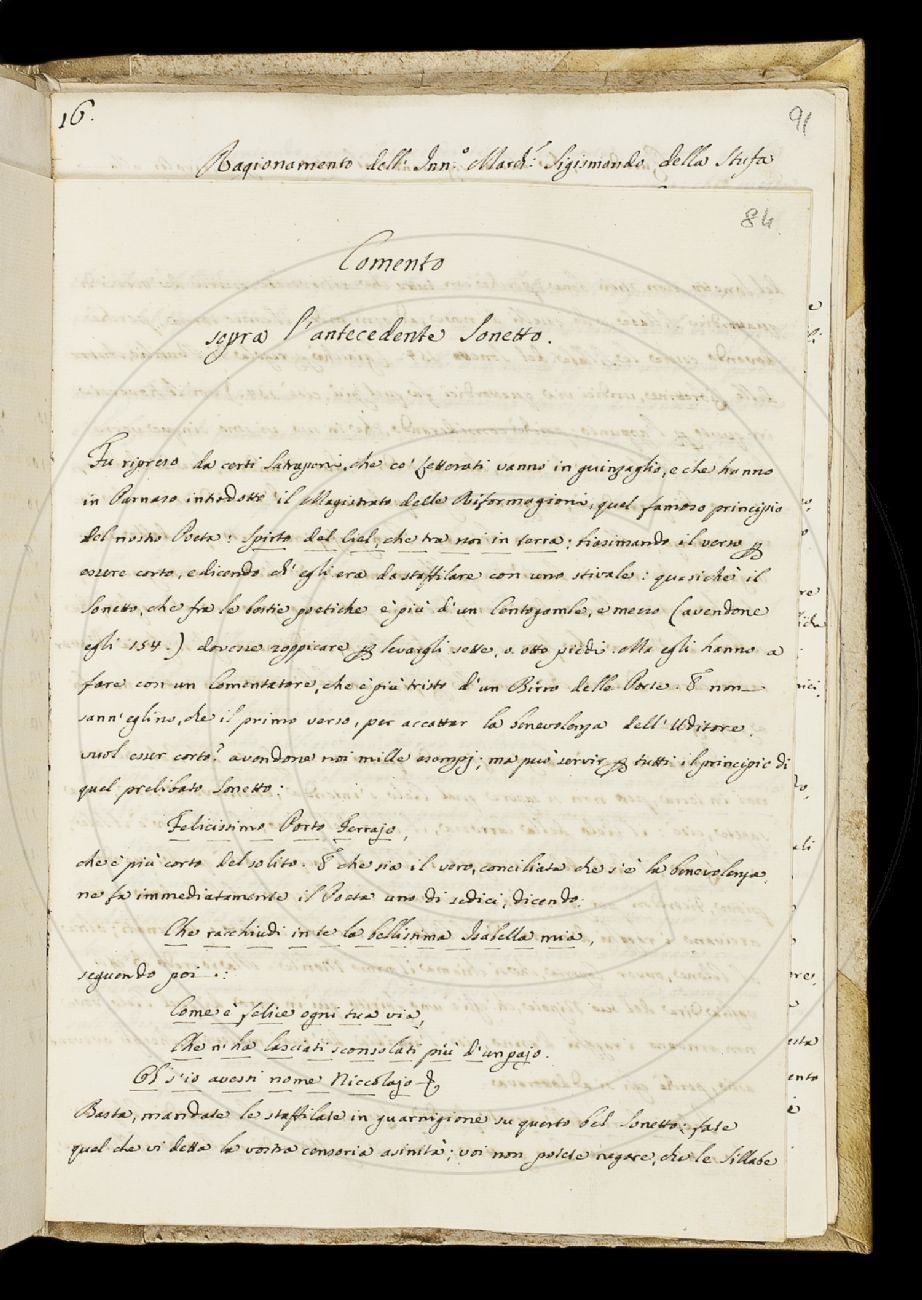 16.
91
Ragionamento dell' Inn.º March.e Sigismondo della Stufa
84
Comento
sopra l'antecedente Sonetto.
Fu ripreso da certi Satraponi, che co' Letterati vanno in guinzaglio, e che hanno
in Parnaso introdotto il Magistrato delle Riformagioni, quel famoso principio
del nostro Poeta: Spirto del Ciel, che tra noi in terra; biasimando il verso ꝑ
essere corto, e dicendo ch' egli era da staffilare con uno stivale: quasichè il
Sonetto, che fra le bestie poetiche è più d'un Centogambe, e mezzo (avendone
egli 154.) dovesse zoppicare ꝑ levargli sette, o otto piedi. Ma egli hanno a
fare con un Comentatore, che è più tristo d'un Birro delle Porte. E non
sann' eglino, che il primo verso, per accattar la benevolenza dell' Uditore,
vuol esser corto? avendone noi mille esempj; ma può servir ꝑ tutti il principio di
quel prelibato Sonetto:
Felicissimo Porto Ferrajo,
che è più corto del solito. E che sia il vero, conciliata che s'è la benevolenza,
ne fa immediatamente il Poeta uno di sedici, dicendo:
Che racchiudi in te la bellissima Isabella mia,
seguendo poi:
Come è felice ogni tua via,
Che n' ha lasciati sconsolati più d'un pajo.
Oh s'io avessi nome Niccolajo &
Basta, mandate le staffilate in guarnigione su questo bel Sonetto; fate
quel che vi detta la vostra censoria asinità; voi non potete negare, che le sillabe